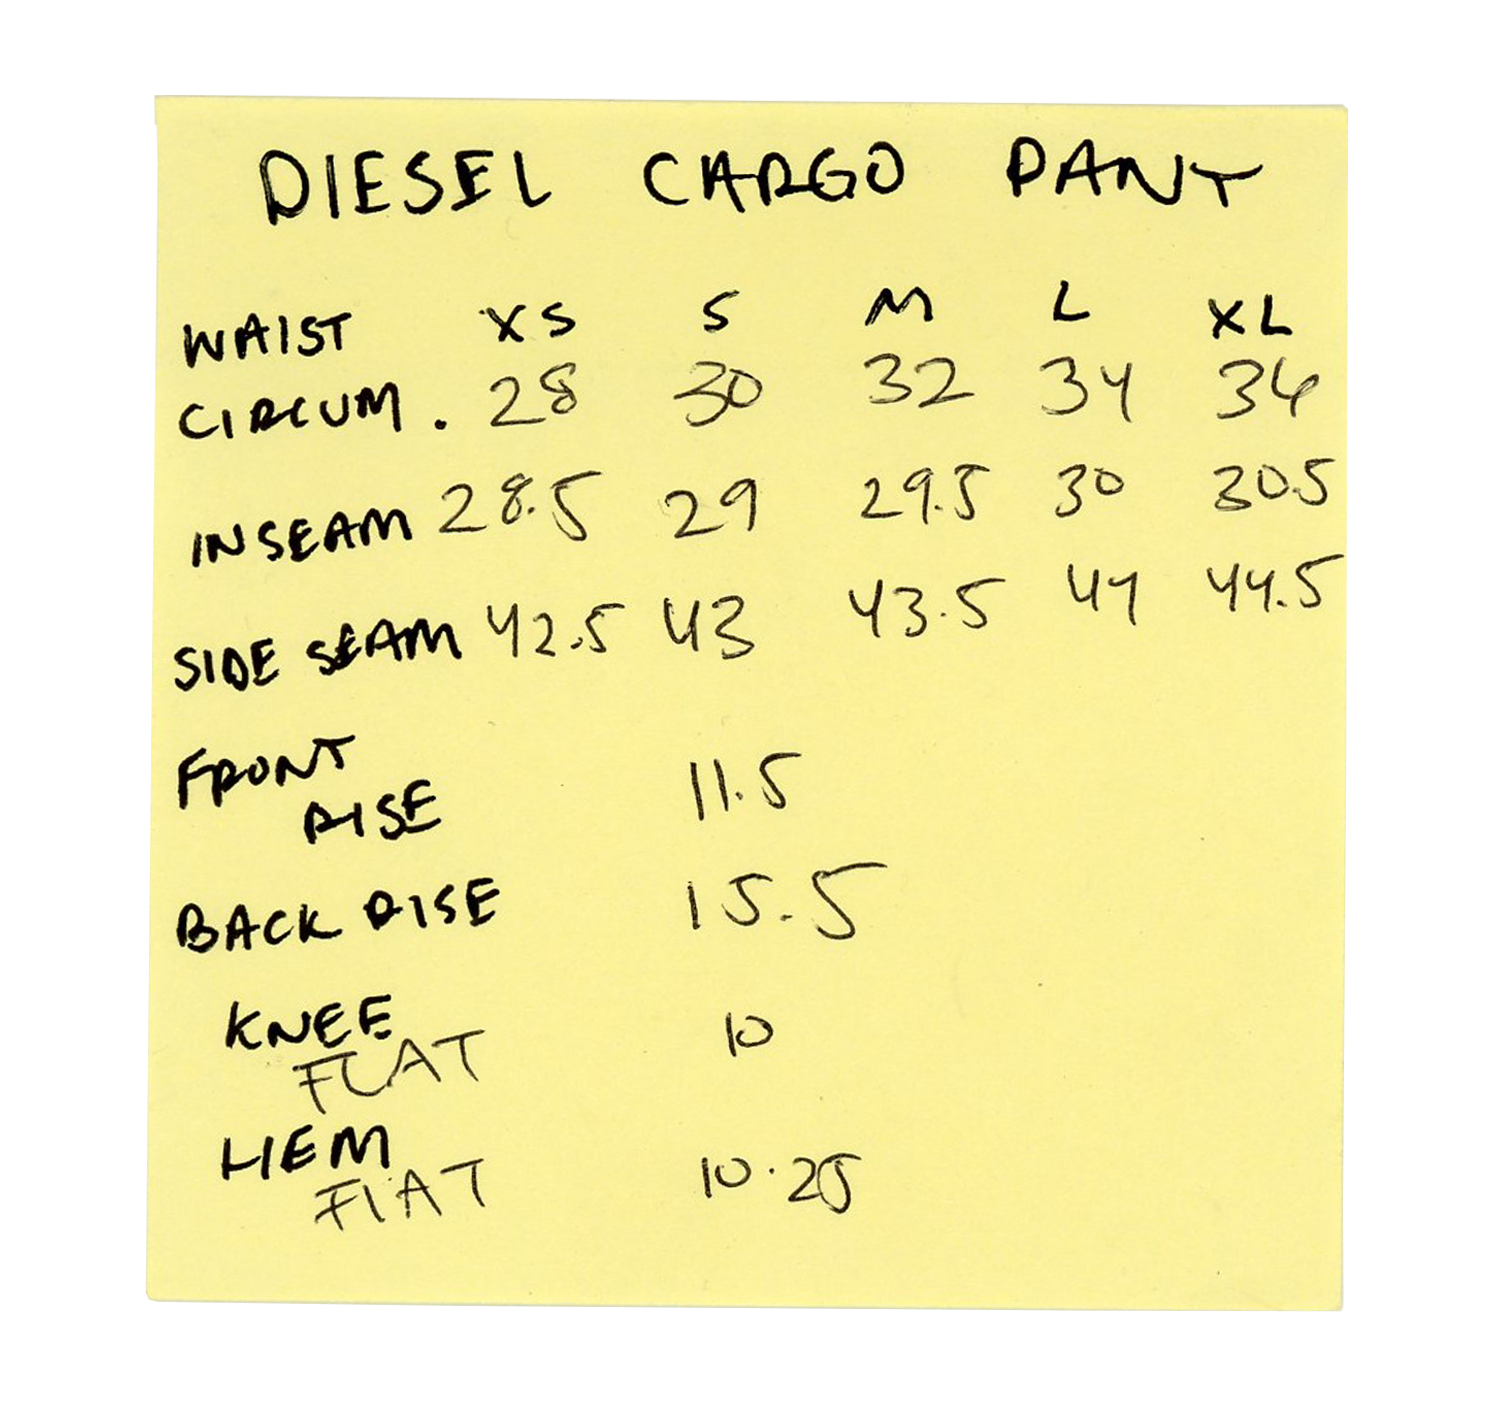 DIESEL CARGO PANT
WAIST XS S M L XL
CIRCUM. 28 30 32 34 36
INSEAM 28.5 29 29.5 30 30.5
SIDE SEAM 42.5 43 43.5 44 44.5
FRONT
RISE 11.5
BACK RISE 15.5
KNEE 10
FLAT
HEM
FLAT 10.25